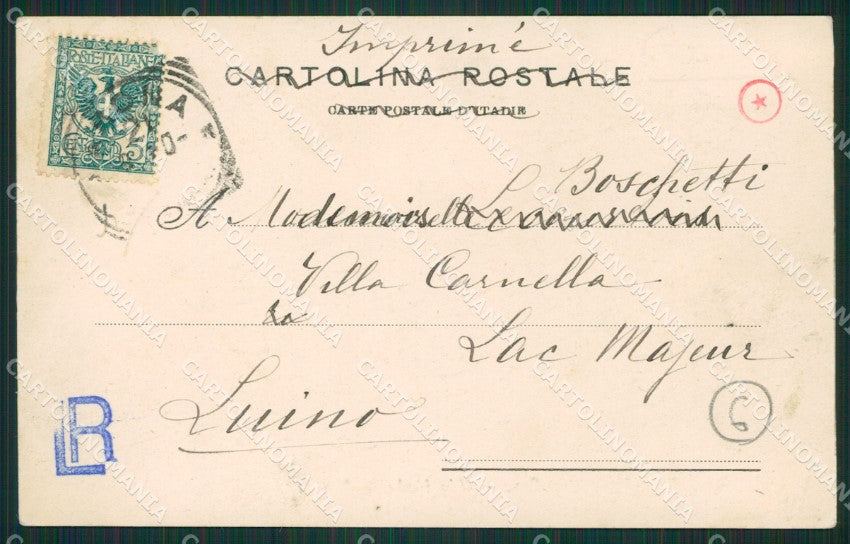 Imprimé
CARTOLINA POSTALE
CARTE POSTALE D'ITALIE
POSTE ITALIANE
5
L. Boschetti
A Mademoiselle
Villa Carnella
Lac Majeur
Luino
6
LR
CARTOLINOMANIA